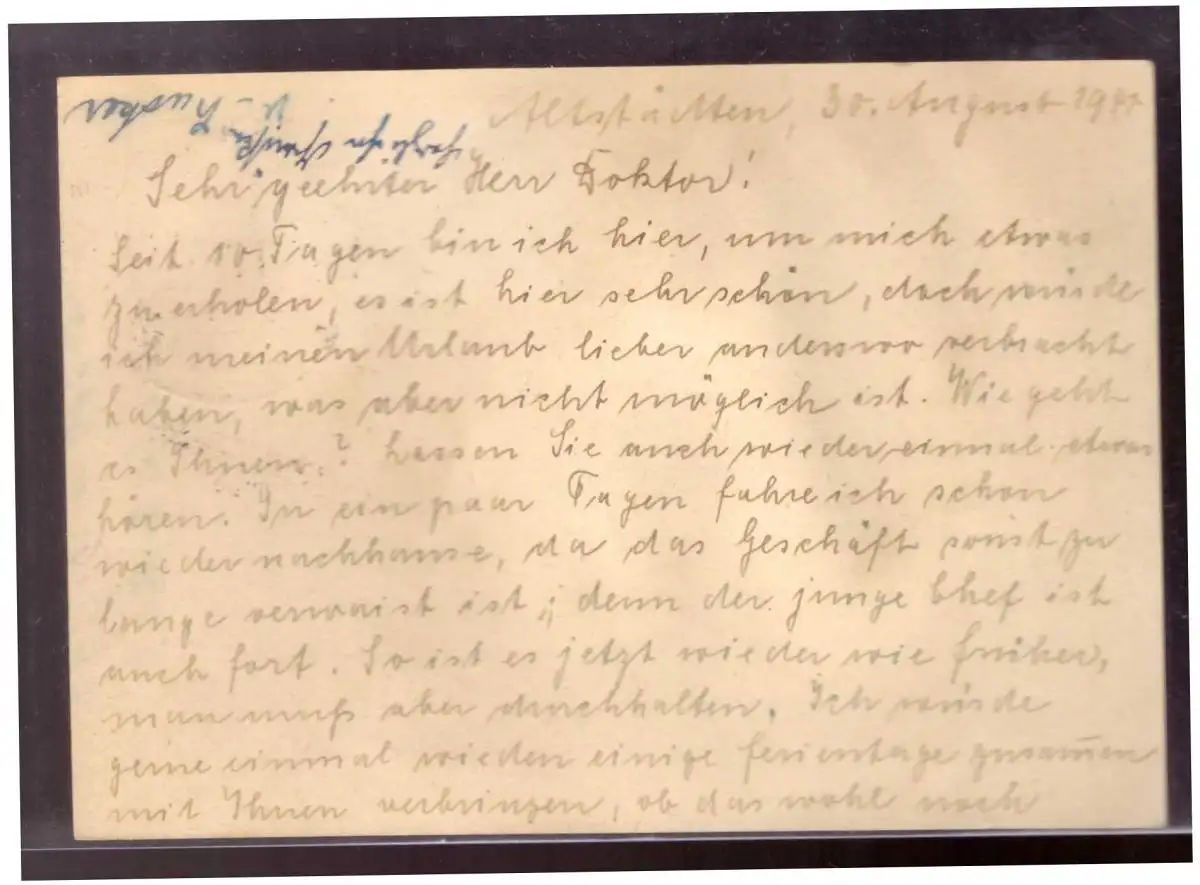 Altstädten, 30. August 19
Sehr geehrter Herr Doktor!
Seit 10 Tagen bin ich hier, um mich etwas
zu erholen, es ist hier sehr schön, doch würde
ich meinen Urlaub lieber anderswo verbracht
haben, was aber nicht möglich ist. Wie geht
es Ihnen? Lassen Sie auch wieder einmal etwas
hören. In ein paar Tagen fahre ich schon
wieder nachhause, da das Geschäft sonst zu
lange verwaist ist; denn der junge Chef ist
auch fort. So ist es jetzt wieder wie früher,
man muß aber durchhalten. Ich würde
gerne einmal wieder einige Ferientage zusammen
mit Ihnen verbringen, ob das wohl noch
herzliche Grüße